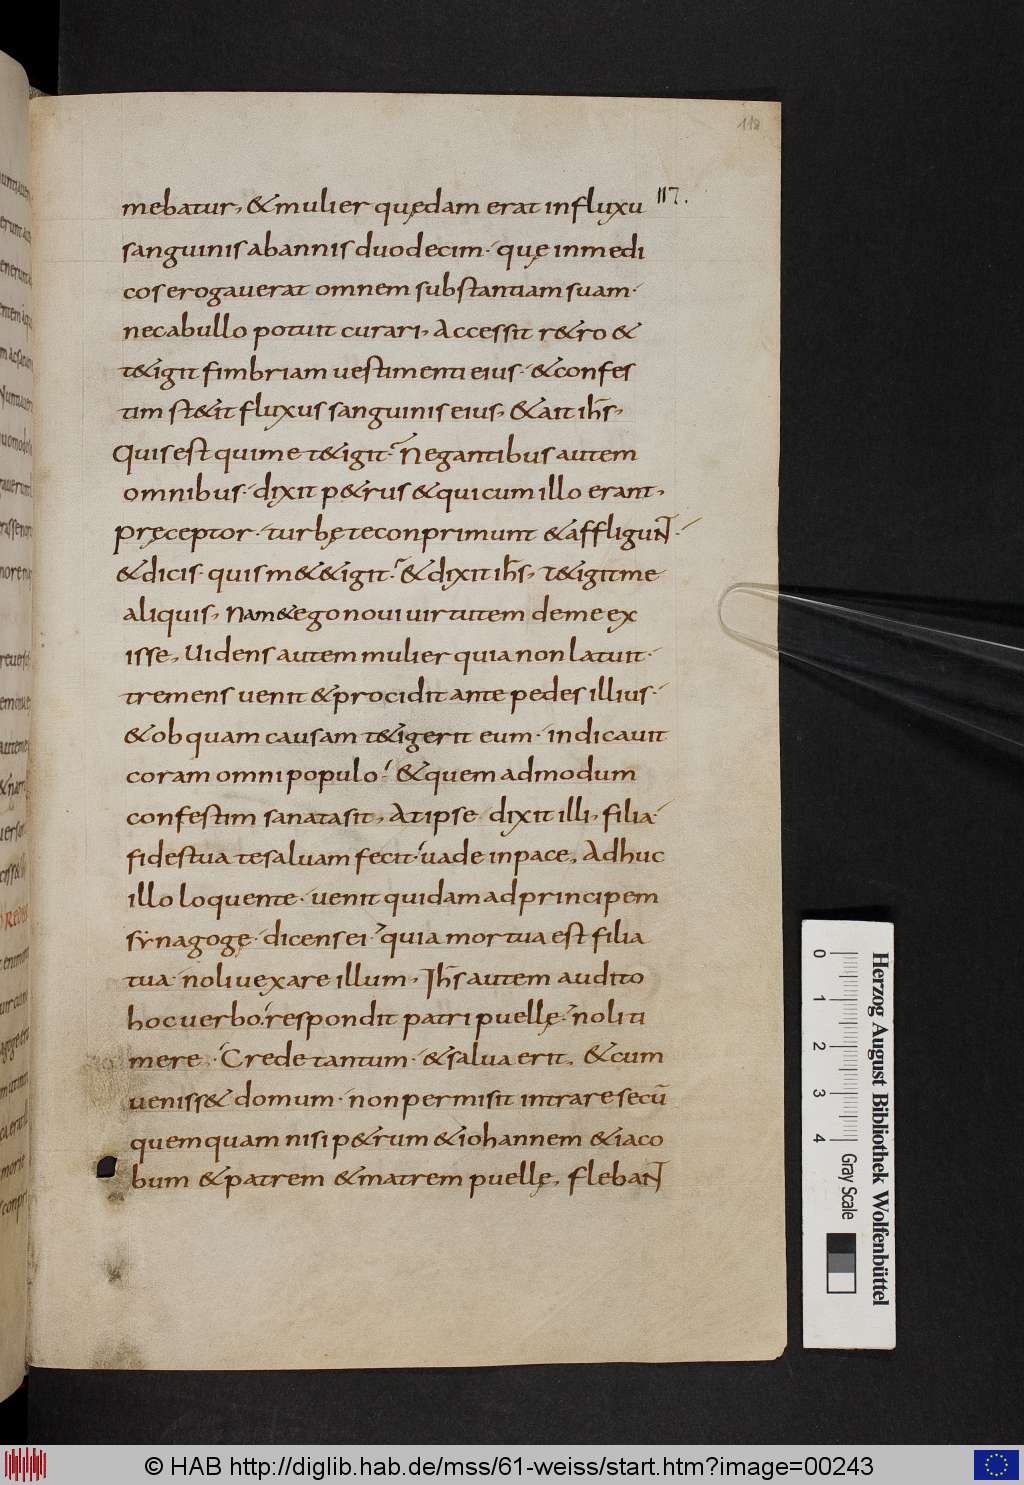 118
117.
mebatur, & mulier quędam erat influxu
sanguinis abannis duodecim· quę inmedi
cos erogauerat omnem substantiam suam·
necabullo potuit curari, Accessit r&ro &
t&igit fimbriam uestimenti eius· & confes
tim st&it fluxus sanguinis eius, & ait ih̅s,
Quis est qui me t&igit· Negantibus autem
omnibus· dixit p&rus & qui cum illo erant,
pręceptor· turbę te conprimunt & affligunt·
& dicis· quis m&&igit· & dixit ih̅s, T&igit me
aliquis, Nam & ego noui uirtutem de me ex
isse, Uidens autem mulier quia non latuit·
tremens uenit & procidit ante pedes illius·
& ob quam causam t&igerit eum· indicauit
coram omni populo· & quem ad modum
confestim sanata sit, At ipse dixit illi, filia·
fides tua te saluam fecit· uade in pace, Adhuc
illo loquente· uenit quidam ad principem
synagogę· dicens ei· quia mortua est filia
tua· noli uexare illum, Ih̅s autem audito
hoc uerbo· respondit patri puellę· noli ti
mere· Crede tantum· & salua erit, & cum
ueniss& domum· non permisit intrare secū
quemquam nisi p&rum & iohannem & iaco
bum & patrem & matrem puellę, flebant
Herzog August Bibliothek Wolfenbüttel
0 1 2 3 4 Gray Scale
© HAB http://diglib.hab.de/mss/61-weiss/start.htm?image=00243